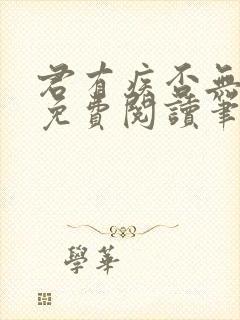 君有疾否無
免費閱讀筆
學華